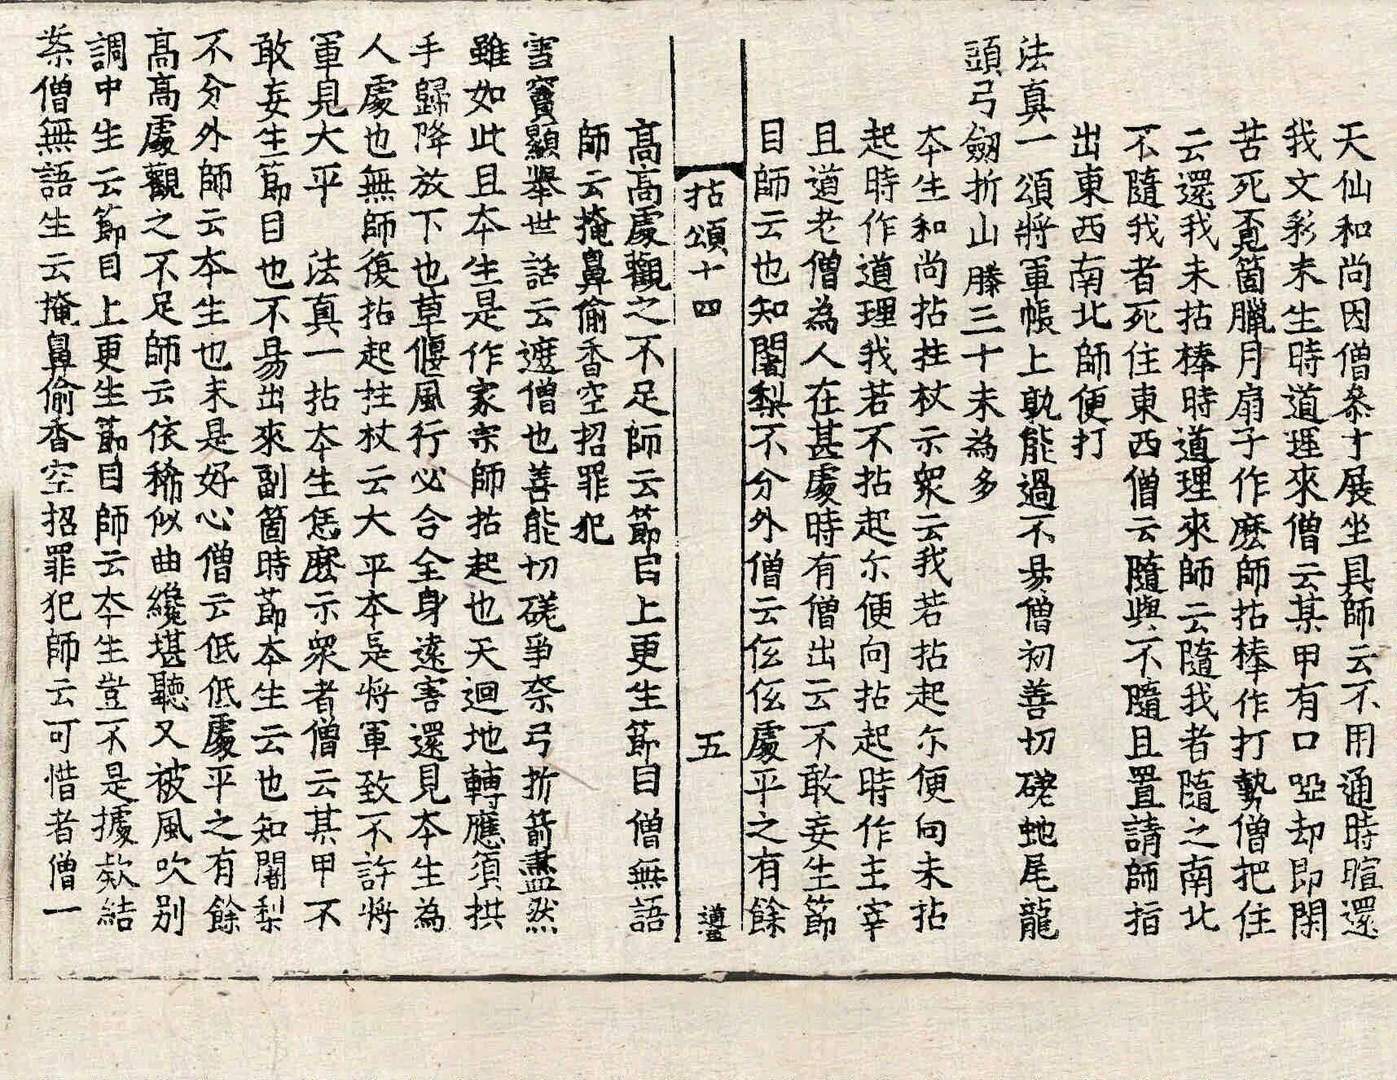 天仙和尚因僧叅才展坐具師云不用通時暄還
我文彩未生時道理來僧云某甲有口啞却即閑
苦死覓箇臘月扇子作麽師拈棒作打勢僧把住
云還我未拈棒時道理來師云隨我者隨之南北
不隨我者死住東西僧云隨與不隨且置請師指
出東西南北師便打
法真一頌將軍帳上孰能過不易僧初善切磋虵尾龍
頭弓劔折山滕三十未為多
本生和尚拈拄杖示衆云我若拈起尒便向未拈
起時作道理我若不拈起尒便向拈起時作主宰
且道老僧為人在甚處時有僧出云不敢妄生節
目師云也知闍梨不分外僧云低低處平之有餘
拈頌十四 五 遵
高高處觀之不足師云節目上更生節目僧無語
師云掩鼻偷香空招罪犯
雪竇顯舉世話云遮僧也善能切磋爭柰弓折箭盡然
雖如此且本生是作家宗師拈起也天迴地轉應須拱
手歸降放下也草偃風行必合全身遠害還見本生為
人處也無師復拈起拄杖云大平本是將軍致不許將
軍見大平 法真一拈本生恁麽示衆者僧云某甲不
敢妄生節目也不易出來副箇時節本生云也知闍梨
不分外師云本生也未是好心僧云低低處平之有餘
高高處觀之不足師云依稀似曲纔堪聽又被風吹別
調中生云節目上更生節目師云本生豈不是據欵結
案僧無語生云掩鼻偷香空招罪犯師云可惜者僧一